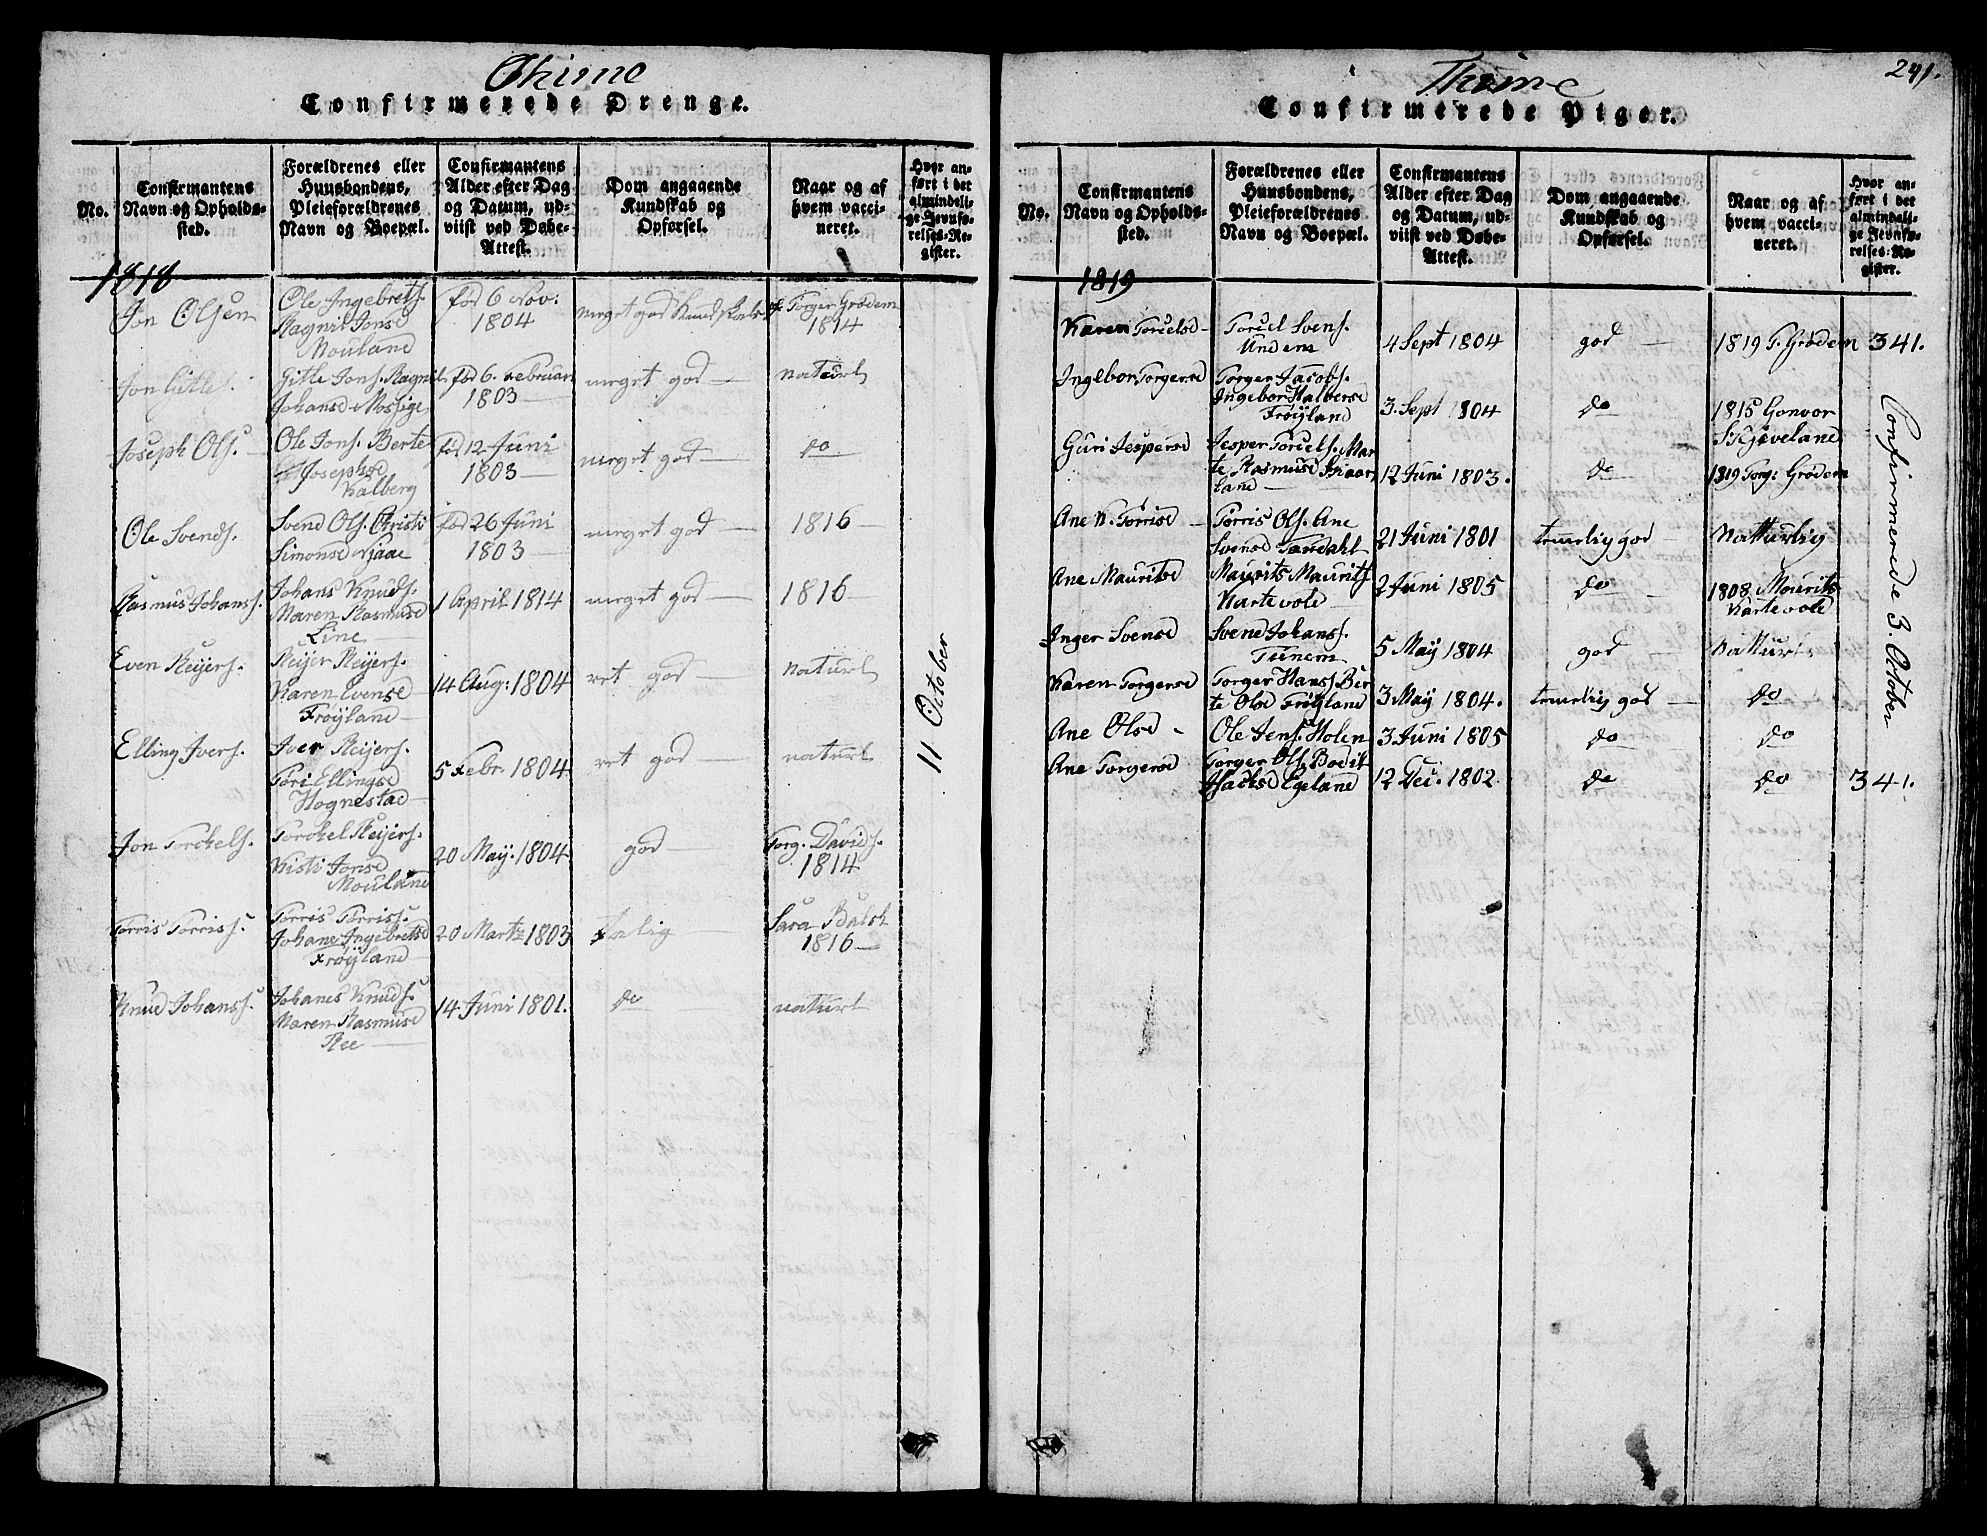 Thime
Confirmerede Drenge.
No.
Confirmantens
Navn og Opholds-
sted.
Forældrenes eller
Huusbondens,
Pleieforældrenes
Navn og Boepæl.
Confirmantens
Alder efter Dag
og Datum, ud-
viist ved Døbe-
Attest.
Dom angaaende
Kundskab og
Opførsel.
Naar og af
hvem vacci-
neret.
Hvor an-
ført i det
almindeli-
ge Jevnfø-
relses-Re-
gister.
1818
Jon Olsen
Ole Ingebrets.
Ragnil Jonsd
Mouland
fød 6 Nov:
1804
meget god Kundskab
Torger Grødem
1814
Jon Gitles.
Gitle Jons. Ragnil
Johansd Mossige
fød 6. Februar
1803
meget god
naturl
Joseph Ols.
Ole Jons. Berte
Josephsd
Kalberg
fød 12 Juni
1803
meget god
do
Ole Svends.
Svend Ols. Christi
Simonsd Njaae
fød 26 Juni
1803
meget god
1816
Rasmus Johans.
Johans Knuds.
Maren Rasmusd
Line
1 April 1814
meget god
1816
Even Reijers.
Reijer Reijers.
Karen Evensd
Frøyland
14 Aug: 1804
ret god
naturl
Elling Ivers.
Iver Reijers.
Tori Ellingsd
Hognestad
5 Febr. 1804
ret god
naturl
Jon Torkels.
Torkel Reijers.
Kisti Jonsd
Mouland
20 May. 1804
god
Torg. Davids.
1814
Torris Torris.
Torris Torris.
Johane Ingebretsd
Frøyland
20 Martz 1803
Sara Balch
1816
Knud Johans.
Johanes Knuds.
Maren Rasmusd
Ree
14 Juni 1801.
do
naturl
11 October
241.
Thime
Confirmerede Piger.
No.
Confirmantens
Navn og Opholds-
sted.
Forældrenes eller
Huusbondens,
Pleieforældrenes
Navn og Boepæl.
Confirmantens
Alder efter Dag
og Datum, ud-
viist ved Døbe-
Attest.
Dom angaaende
Kundskab og
Opførsel.
Naar og af
hvem vacci-
neret.
Hvor an-
ført i det
almindeli-
ge Jevnfø-
relses-Re-
gister.
1819
Karen Torcelsd
Torcel Svens.
Undem
4 Sept 1804
god
1819 T. Grødem
341.
Ingebor Torgersd
Torger Jacobs.
Ingebor Halversd
Frøyland
3. Sept 1804
do
1815 Gonvor
Skjeveland
Guri Jespersd
Jesper Torcels. Mar
te Rasmusd Skaar
land
12 Juni 1803.
do
1819 Torg: Grødem
Ane N. Torrisd
Torris Ols. Ane
Svensd Tardahl
21 Juni 1801
temelig god
Natturlig
Ane Mauritsd
Maurits Maurits.
Kartevole
2 Juni 1805
do
1808 Maurits
Kartevole
Inger Svensd
Svend Johans.
Tunem
5 May 1804
god
Natturl
Karen Torgersd
Torger Hans. Ber
te Olsd Frøyland
3 May 1804.
temelig god
do
Ane Olsd
Ole Jens. Holen
3 Juni 1805
do
do
Ane Torgersd
Torger Ols. Bodil
Isacksd Egeland
12 Dec. 1802.
do
do
341.
Confirmerede 3. October